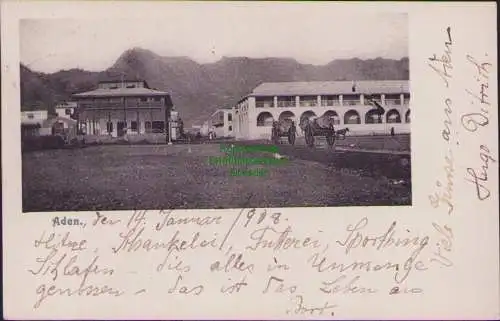 Aden., den 14. Januar 1908.
Hitze, Schaukelei, Futterei, Sporting
Schlafen – dies alles in Unmenge
genossen – das ist das Leben an
Bord.
Viele Grüsse aus Aden
Hugo